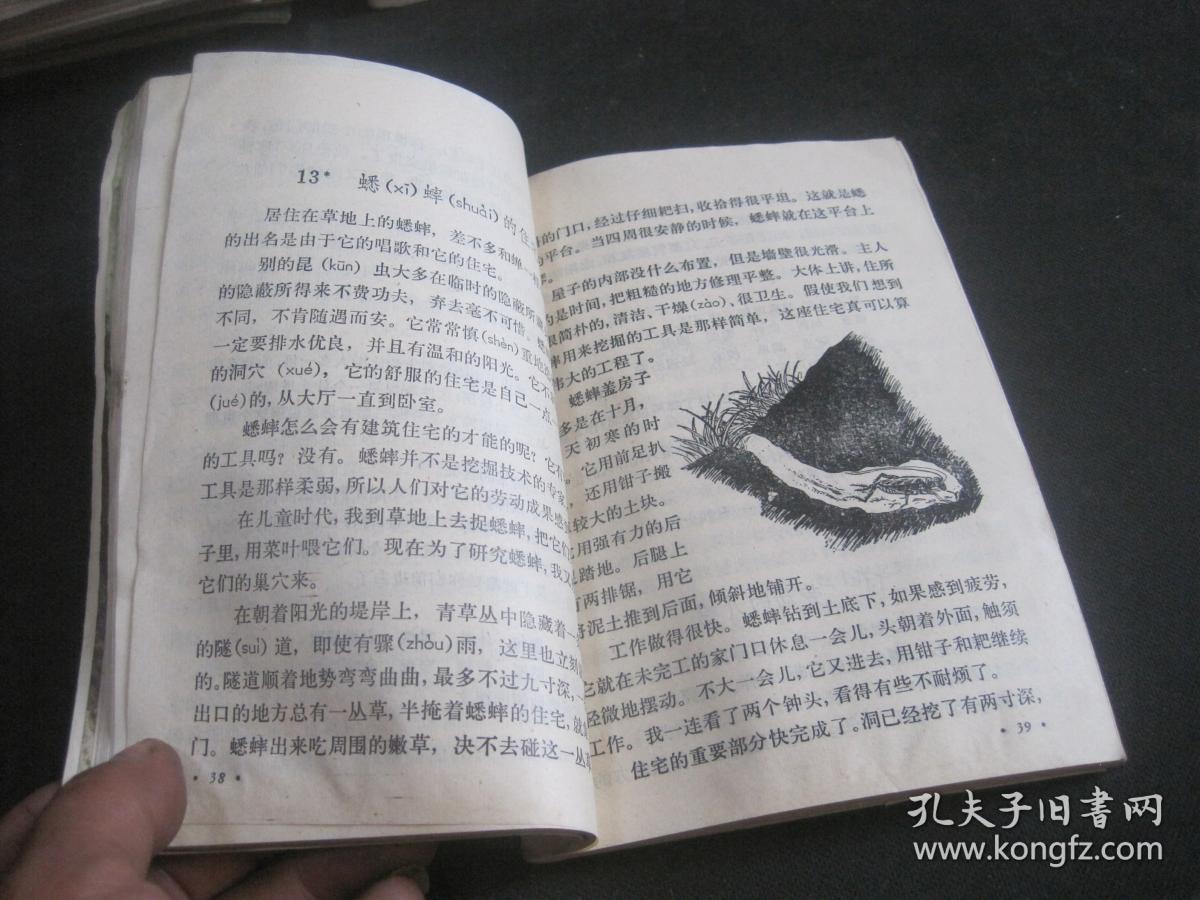 13* 蟋(xī)蟀(shuài)的住
居住在草地上的蟋蟀，差不多和蝉一
的出名是由于它的唱歌和它的住宅。
别的昆(kūn)虫大多在临时的隐蔽所
的隐蔽所得来不费功夫，弃去毫不可惜。
不同，不肯随遇而安。它常常慎(shèn)重地
一定要排水优良，并且有温和的阳光。它不
的洞穴(xué)，它的舒服的住宅是自己一点
(jué)的，从大厅一直到卧室。
蟋蟀怎么会有建筑住宅的才能的呢？它
的工具吗？没有。蟋蟀并不是挖掘技术的专家
工具是那样柔弱，所以人们对它的劳动成果感
在儿童时代，我到草地上去捉蟋蟀，把它们
子里，用菜叶喂它们。现在为了研究蟋蟀，我又
它们的巢穴来。
在朝着阳光的堤岸上，青草丛中隐藏着一
的隧(suì)道，即使有骤(zhòu)雨，这里也立刻
的。隧道顺着地势弯弯曲曲，最多不过九寸深，
出口的地方总有一丛草，半掩着蟋蟀的住宅，就
门。蟋蟀出来吃周围的嫩草，决不去碰这一丛
·38·
的门口，经过仔细耙扫，收拾得很平坦。这就是蟋
平台。当四周很安静的时候，蟋蟀就在这平台上
屋子的内部没什么布置，但是墙壁很光滑。主人
的是时间，把粗糙的地方修理平整。大体上讲，住所
很简朴的，清洁、干燥(zào)、很卫生。假使我们想到
用来挖掘的工具是那样简单，这座住宅真可以算
大的工程了。
蟋蟀盖房子
多是在十月，
天初寒的时
它用前足扒
还用钳子搬
较大的土块。
用强有力的后
踏地。后腿上
有两排锯，用它
泥土推到后面，倾斜地铺开。
工作做得很快。蟋蟀钻到土底下，如果感到疲劳，
它就在未完工的家门口休息一会儿，头朝着外面，触须
轻微地摆动。不大一会儿，它又进去，用钳子和耙继续
工作。我一连看了两个钟头，看得有些不耐烦了。
住宅的重要部分快完成了。洞已经挖了有两寸深，
·39·
孔夫子旧书网
www.kongfz.com